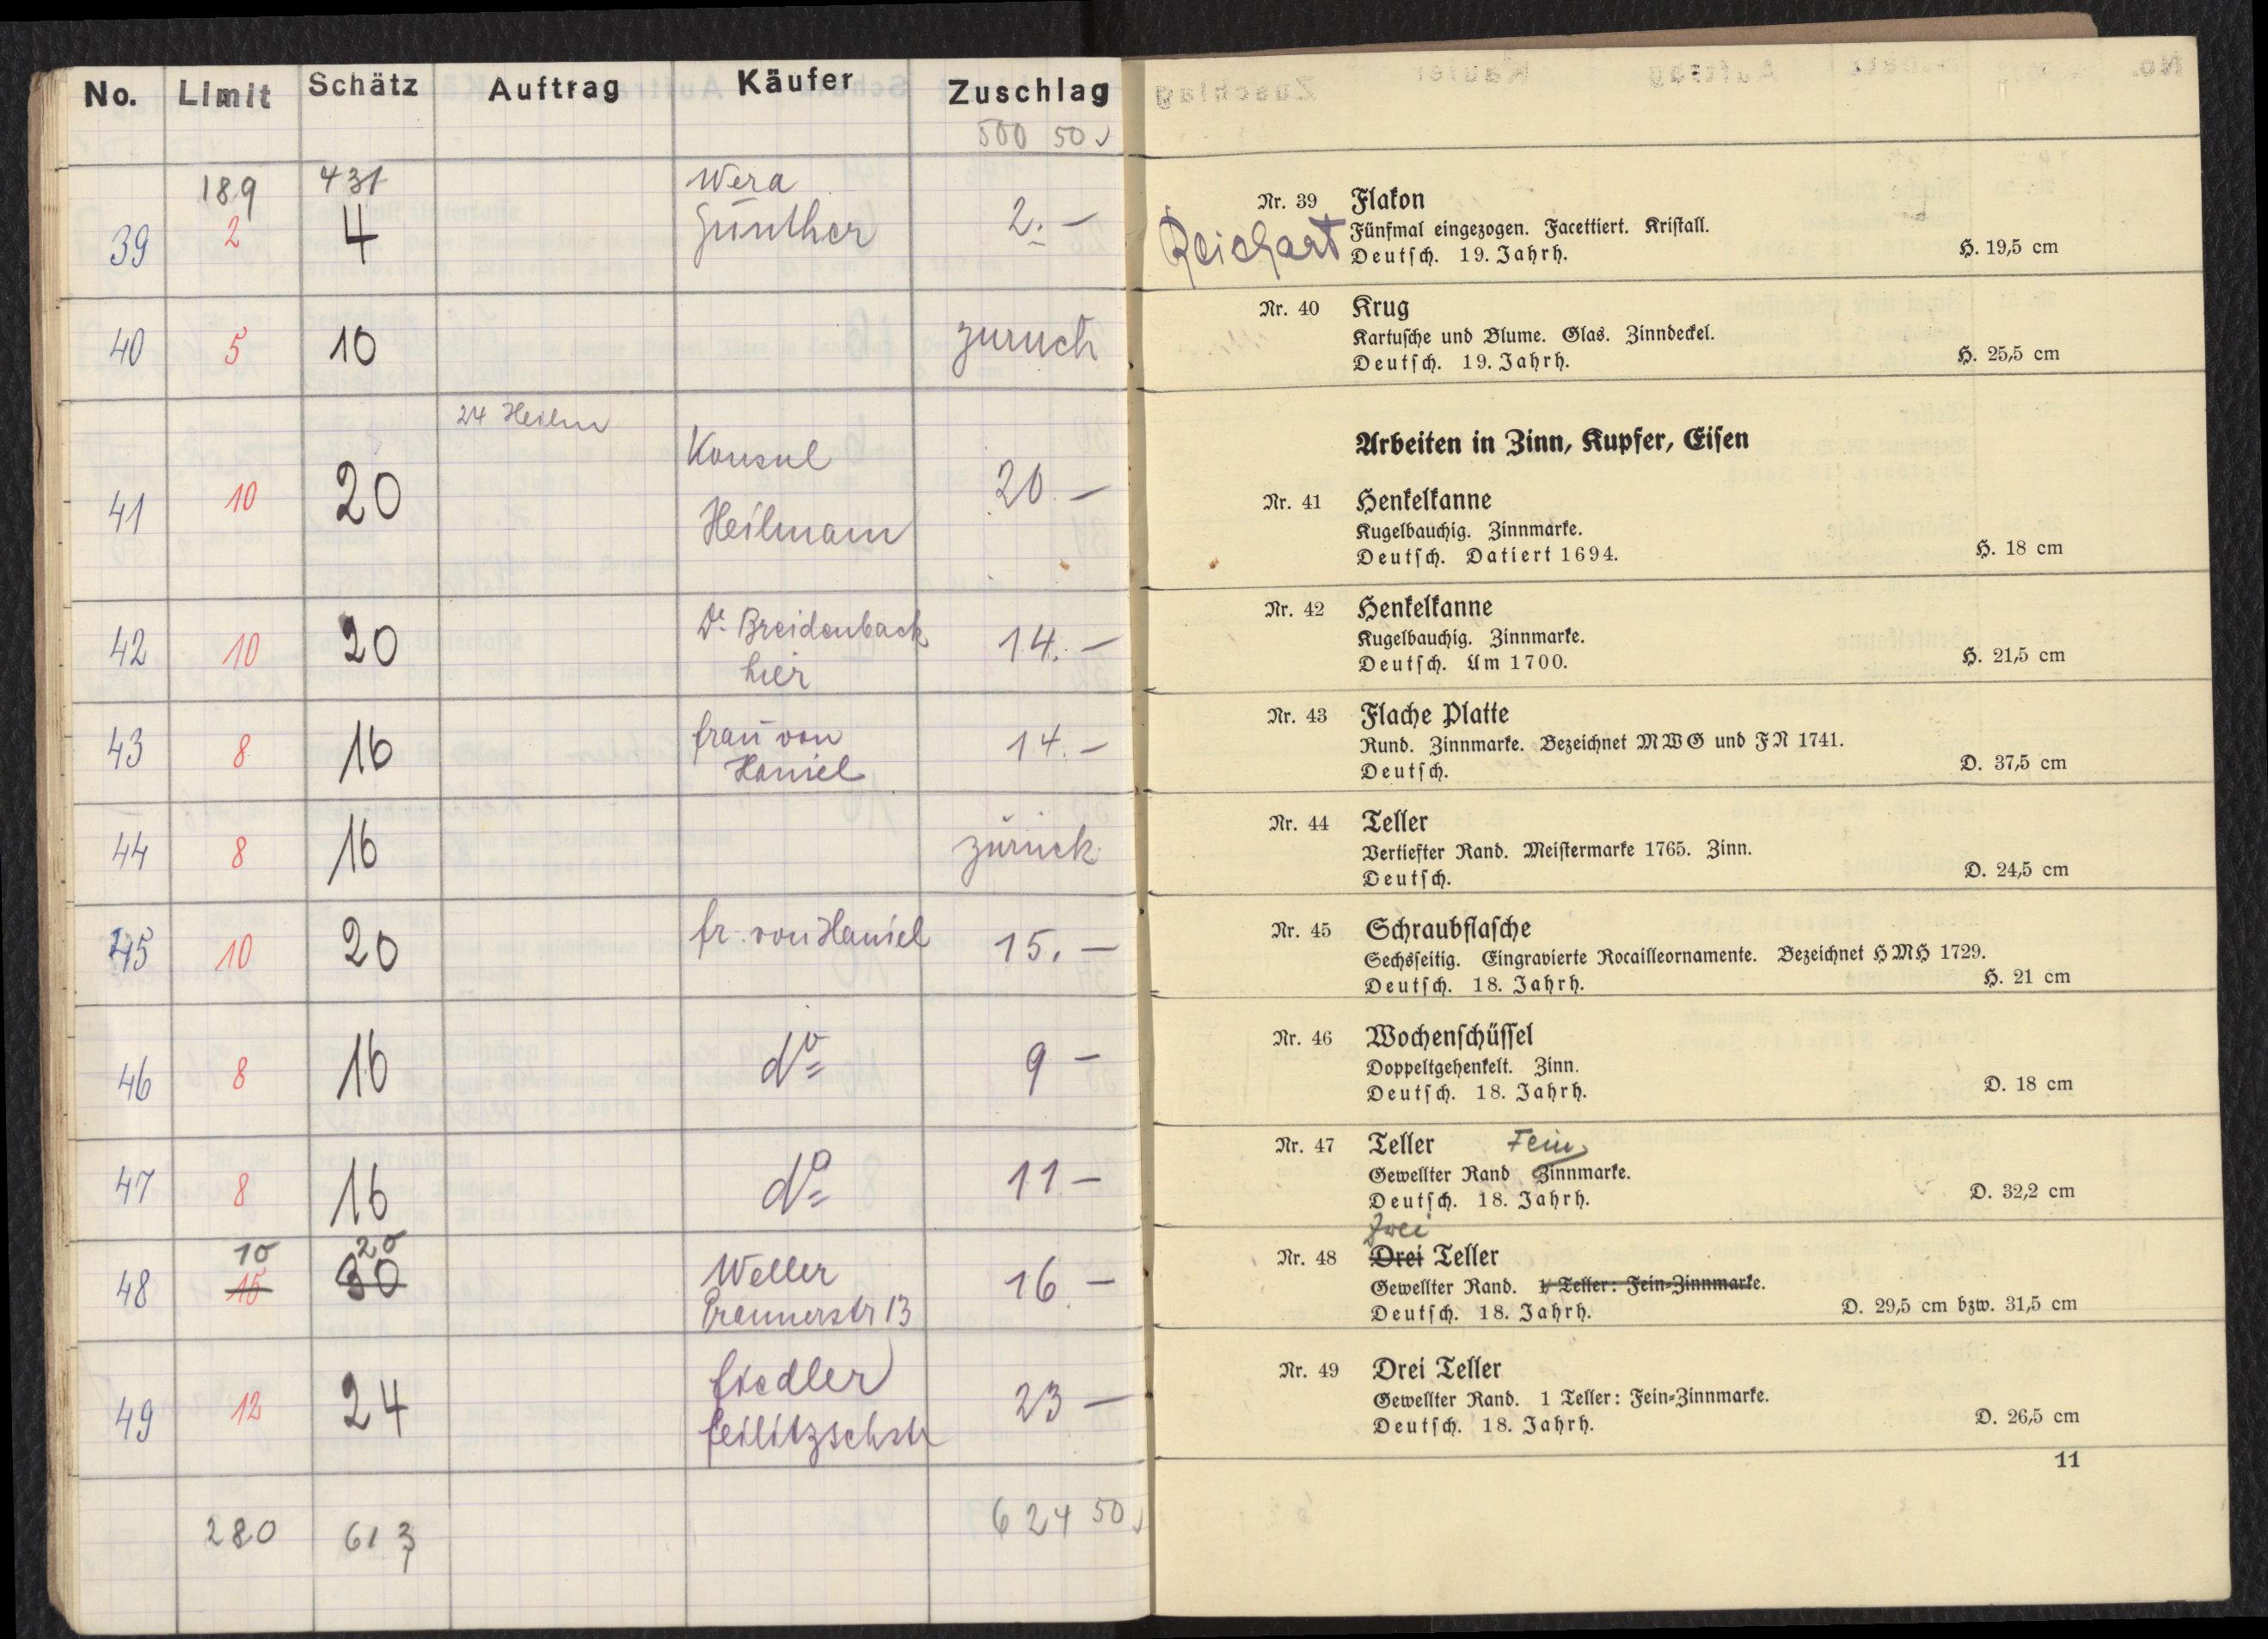 No. Limit Schätz Auftrag Käufer Zuschlag
500 50
189 431 Wera
39 2 4 Günther 2.-
40 5 10 zurück
24 Heilm
Konsul
41 10 20 20.-
Heilmann
42 10 20 Dr. Breidenbach 14.-
hier
43 8 16 frau von 14.-
Haniel
44 8 16 zurück
45 10 20 fr. von Haniel 15.-
46 8 16 do 9 -
47 8 16 do 11 -
10 20
48 15 30 Weller 16 -
Prannerstr 13
49 12 24 fiedler 23 -
feilitzschstr
280 613 624 50
Nr. 39 Flakon
Reichart Fünfmal eingezogen. Facettiert. Kristall.
Deutsch. 19. Jahrh. H. 19,5 cm
Nr. 40 Krug
Kartusche und Blume. Glas. Zinndeckel.
Deutsch. 19. Jahrh. H. 25,5 cm
Arbeiten in Zinn, Kupfer, Eisen
Nr. 41 Henkelkanne
Kugelbauchig. Zinnmarke.
Deutsch. Datiert 1694. H. 18 cm
Nr. 42 Henkelkanne
Kugelbauchig. Zinnmarke.
Deutsch. Um 1700. H. 21,5 cm
Nr. 43 Flache Platte
Rund. Zinnmarke. Bezeichnet MWG und FN 1741.
Deutsch. D. 37,5 cm
Nr. 44 Teller
Vertiefter Rand. Meistermarke 1765. Zinn.
Deutsch. D. 24,5 cm
Nr. 45 Schraubflasche
Sechsseitig. Eingravierte Rocailleornamente. Bezeichnet HMH 1729.
Deutsch. 18. Jahrh. H. 21 cm
Nr. 46 Wochenschüssel
Doppeltgehenkelt. Zinn.
Deutsch. 18. Jahrh. D. 18 cm
Nr. 47 Teller Fein
Gewellter Rand Zinnmarke.
Deutsch. 18. Jahrh. D. 32,2 cm
Zwei
Nr. 48 Drei Teller
Gewellter Rand. 1 Teller: Fein-Zinnmarke.
Deutsch. 18. Jahrh. D. 29,5 cm bzw. 31,5 cm
Nr. 49 Drei Teller
Gewellter Rand. 1 Teller: Fein-Zinnmarke.
Deutsch. 18. Jahrh. D. 26,5 cm
11